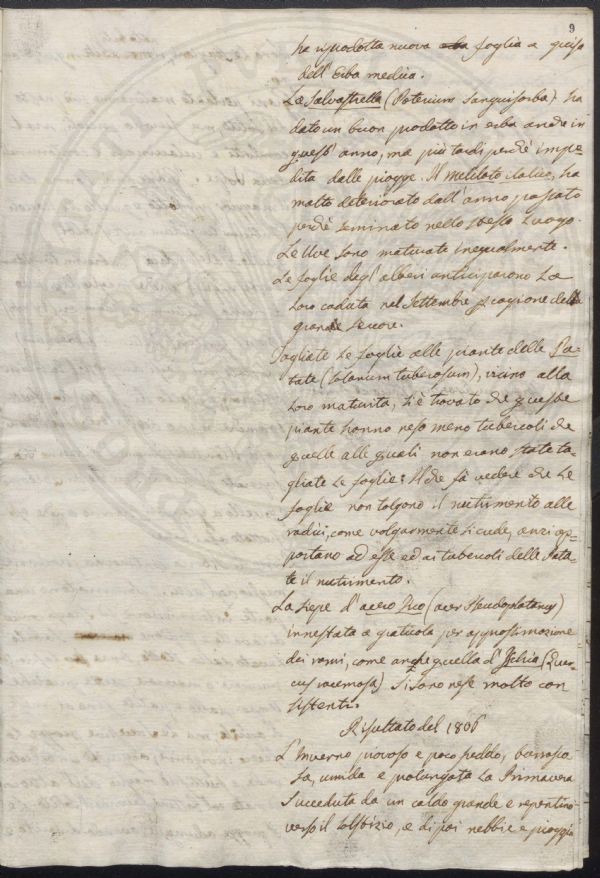 9
ha riprodotta nuova foglia a guisa
dell'Erba medica.
La Salvastrella (Poterium Sanguisorba) ha
dato un buon prodotto in erba anche in
quest'anno, ma più tardi perchè impe-
dita dalle piogge. Il Meliloto italico, ha
molto deteriorato dall'anno passato
perchè seminato nello stesso luogo.
Le Uve sono maturate inegualmente.
Le foglie degl'alberi anticiparono La
loro caduta nel Settembre p cagione della
grande seccore.
Tagliate Le foglie alle piante delle Pa-
tate (Solanum tuberosum), vicino alla
loro maturità, si è trovato che queste
piante hanno reso meno tubercoli che
quelle alle quali non erano state ta-
gliate Le foglie: Il che fà vedere che Le
foglie non tolgono il nutrimento alle
radici, come volgarmente si crede, anzi ap-
portano ad esse ed ai tubercoli delle Pata-
te il nutrimento.
La siepe d'acero fico (acer Pseudoplatanus)
innestata a graticola per approssimazione
dei rami, come anche quella d'Ischia (Quer-
cus racemosa) si sono rese molto con
sistenti.
Risultato del 1806
L'Inverno piovoso e poco freddo, burrasco
sa, umida e prolungata La Primavera
succeduta da un caldo grande e repentino
verso il solstizio, e di poi nebbie e pioggie